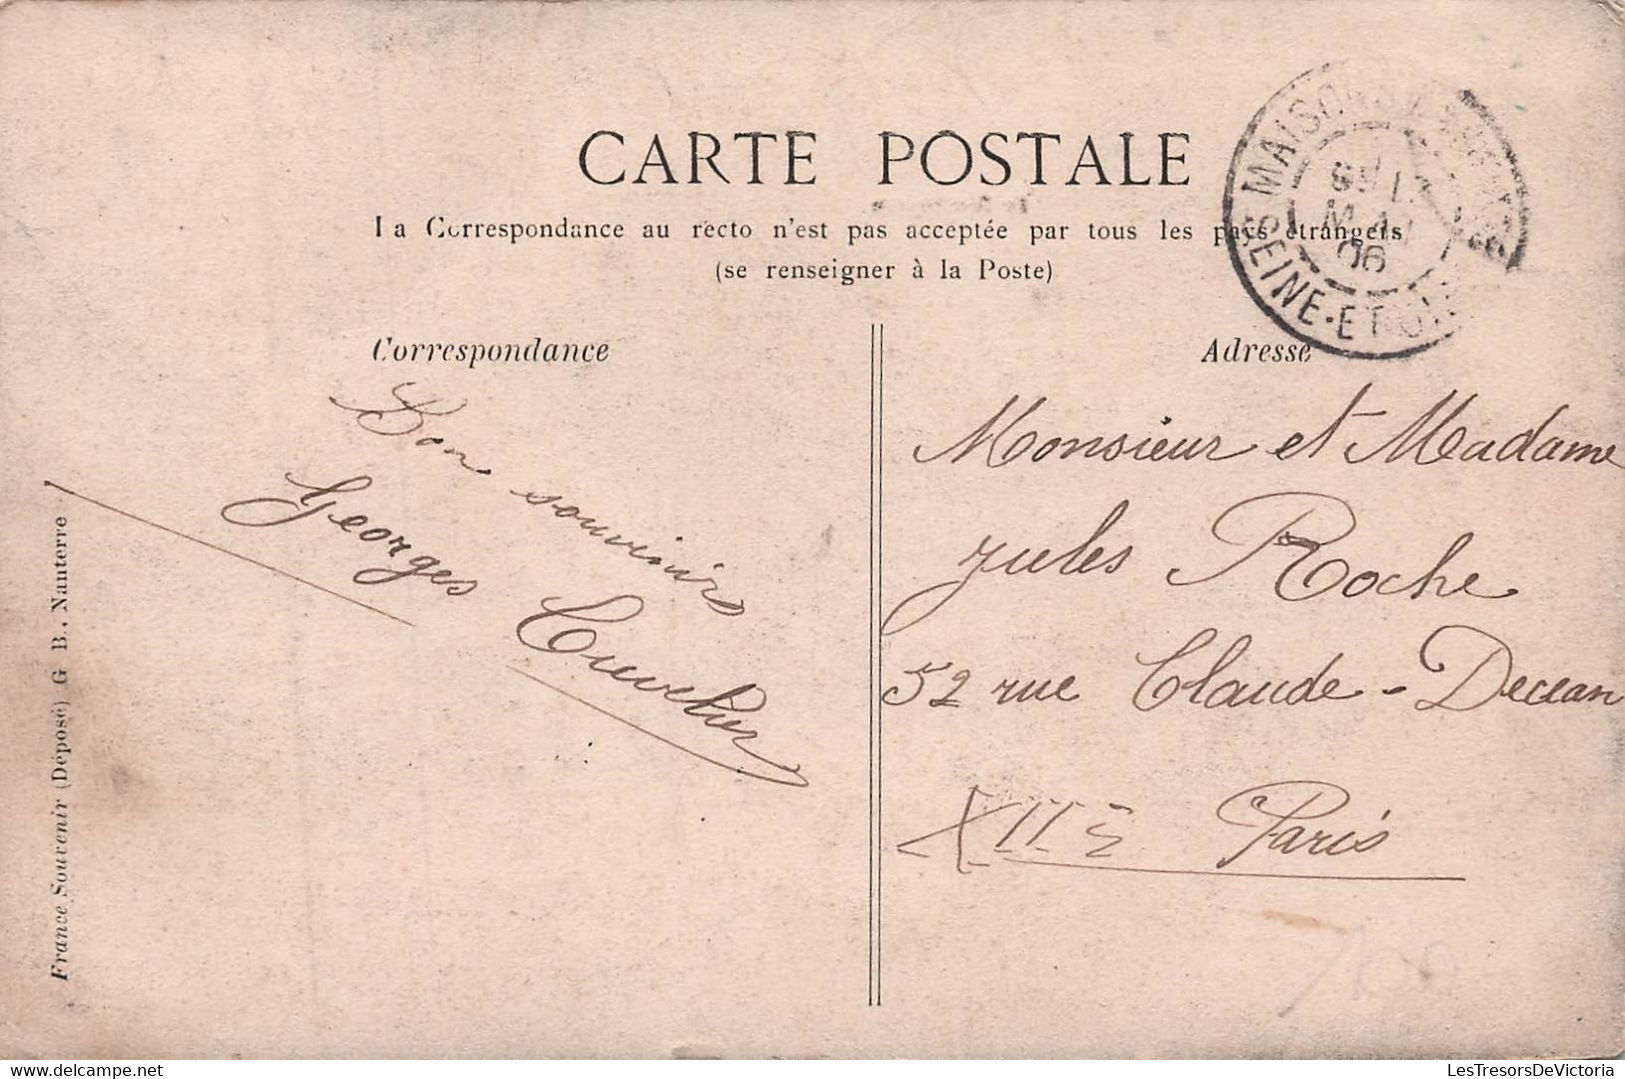 CARTE POSTALE
La Correspondance au recto n'est pas acceptée par tous les pays étrangers
(se renseigner à la Poste)
Correspondance
Bon souvenir
Georges
Adresse
Monsieur et Madame
Jules Roche
52 rue Claude-Decaen
XIIe Paris
MAISONS
SEINE-ET-OISE
MAI
06
France Souvenir (Déposé) G B., Nanterre
delcampe.net
LesTresorsDeVictoria